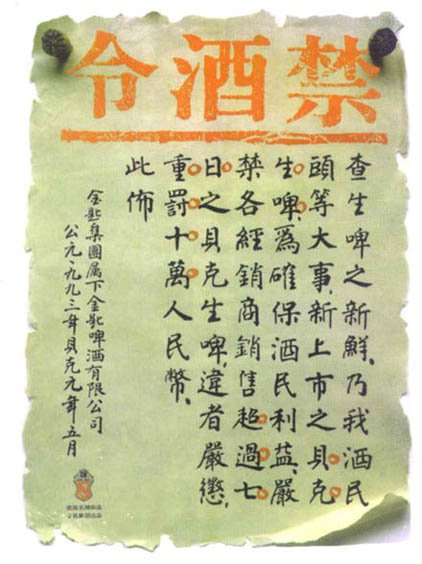 禁酒令
查生啤之新鮮、乃我酒民
頭等大事、新上市之貝克
生啤、爲確保酒民利益、嚴
禁各經銷商銷售超過七
日之貝克生啤、違者嚴懲、
重罰十萬人民幣、
此佈
金匙集團属下金匙啤酒有限公司
公元一九九三年貝克元年五月